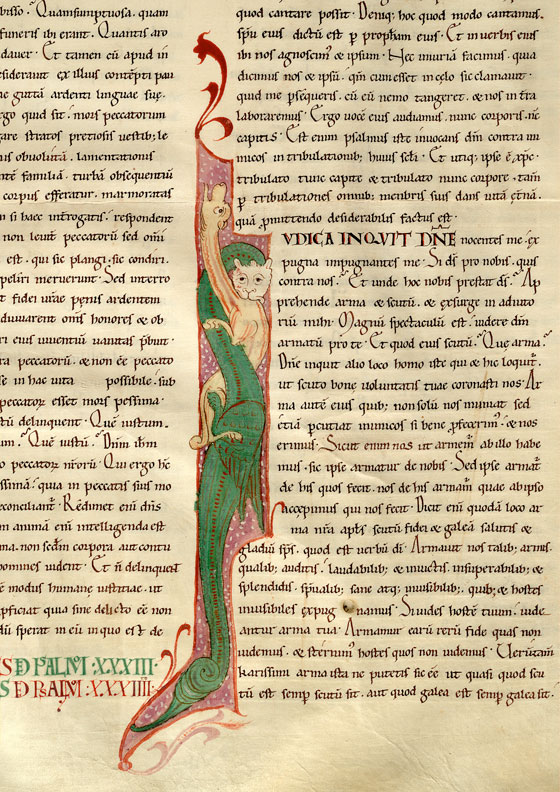 ibisso. Quamsumptuosa. quam
funeris ibi erant. Quantis aro
daver. Et tamen eū apud in
desideravit ex illius contēpti pau
ae guttā ardenti linguae suę.
ergo quid sit. mors peccatorum
gare stratos pretiosis vestib; le
us obvolutā. lamentationis
familiā. turbā obsequentiū
corpus efferatur. marmoratas
n si haec introgatis. respondent
non levit peccatorū sed om̄i
est. qui sic plangi. sic condiri.
peliri meruerunt. Sed interro
t fidei vīrae penis ardentem
adiuvarent om̄s honores & ob
ri eius viventiū vanitas pbuit.
ra peccatorū. & non ēē peccato
se in hac vita possibile. sub
peccator esset mors pessima.
stū delinquent. Quē iustum.
um. Quē iustū. Dn̄m ihm
peccatoꝝ nr̄orū. Qui ergo hc̄
essimā. quia in peccatis suis mo
reconciliant. Redimet eni dn̄s
m animā eni intelligenda est
ma. non sedm corpora aut contu
homines vident. Et n̄ delinquent
ē modus humanę iustitiae. ut
pficiat quia sine delicto ēē non
dū sperat in eū in quo est de
S D PSALM. XXXIII.
S D PSALM. XXXIIII.
quod cantare possit. Deniq; hoc quod modo cantamus.
spū eius dictū est p prophām eius. Et in verbis eius
ibi nos agnoscim' & ipsum. Nec iniuriā facimus. qua
dicimus nos & ipsū. qm̄ cum esset in cęlo sic clamavit.
quid me pseq̄ris. cū eū nemo tangeret. & nos in trā
laboraremus. Ergo vocē eius audiamus. nunc corporis. nc̄
capitis. Est enim psalmus iste invocans dn̄m contra ini
micos in tribulationib; huius sc̄li. Et utiq; ipse ē xp̄c.
tribulato tunc capite & tribulato nunc corpore. tam̄
p tribulationes omnib; membris suis dans vitā ętnā.
quā pmittendo desiderabilis factus est.
UDICA INQUIT DN̄E nocentes me. ex
pugna impugnantes me. Si ds̄ pro nobis. quis
contra nos. Et unde hoc nobis prestat ds̄. Ap
prehende arma & scutū. & exsurge in adiuto
riū mihi. Magnū spectaculū est. videre dn̄m
armatū pro te. Et quod eius scutū. Que arma.
Dn̄e inquit alio loco homo iste qui & hic loquit̄.
ut scuto bonę voluntatis tuae coronasti nos. Ar
ma autē eius quib; non solū nos muniat sed
etiā percutiat inimicos si bene pfecerim'. & nos
erimus. Sicut enim nos ut armem̄ ab illo habe
mus. sic ipse armatur de nobis. Sed ipse armat̄
de his quos fecit. nos de his armam̄ quae ab ipso
accepimus qui nos fecit. Dicit eni quodā loco ar
ma nr̄a apl̄s scutū fidei & galeā salutis &
gladiū sps̄. quod est verbū dī. Armavit nos talib; armis.
qualib; auditis. laudabilib; & invictis. insuperabilib; &
splendidis. spūalib; sane atq; invisibilib;. quib; & hostes
invisibiles expug namus. Si vides hostē tuum. vide
antur arma tua. Armamur earū rerū fide quas non
videmus. & sternim' hostes quos non videmus. Verūtam̄
karissimi arma ista ne putetis sic ēē ut quasi quod scu
tū est semp scutū sit. aut quod galea est semp galea sit.